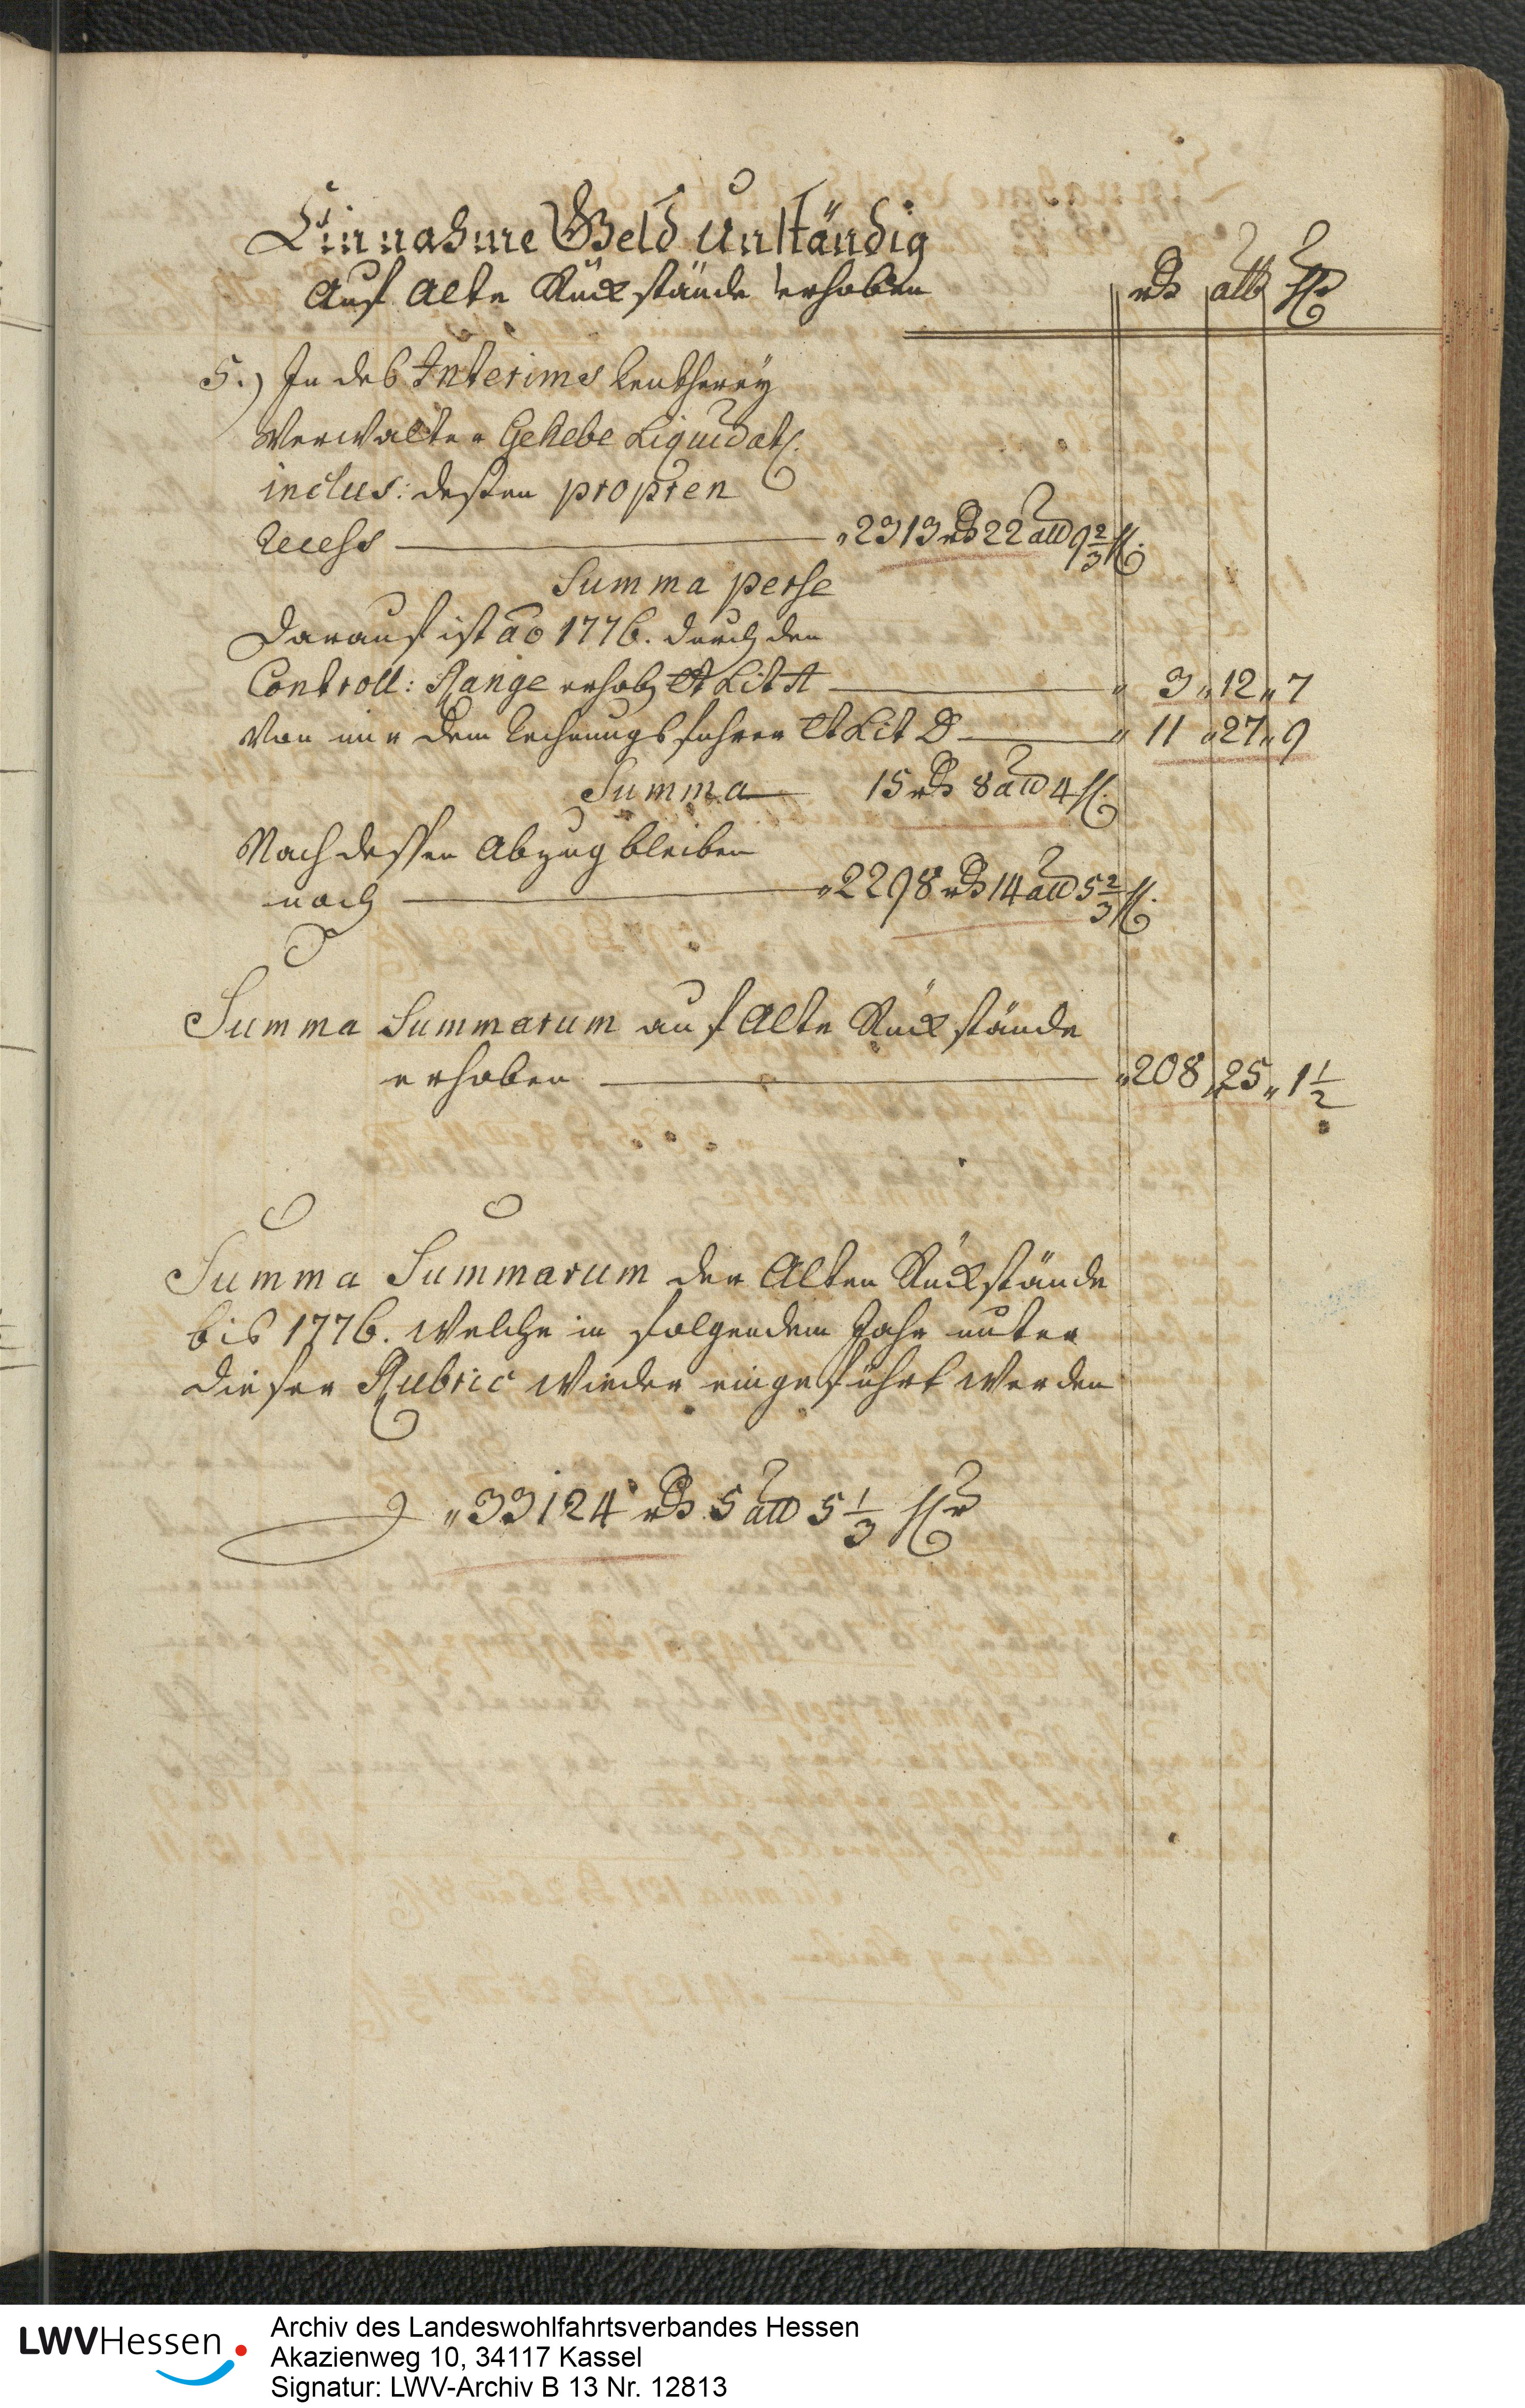 Einnahme Geld unständig
Auf Alte Rückstände erhoben rth alb hlr
5.) In des Interims Rentherey
Verwalter Gekebe Liquidat.
inclus: dessen propren
Recess " 2313 rth 22 alb 9 2/3 hl.
Summa perse
Darauf ist ao 1776. durch den
Controll: Range erhob. Lit A " 3 " 12 " 7
Von mir dem Rechnungsführer Lit D " 11 " 27 " 9
Summa 15 rth 8 alb 4 hl.
Nach dessen Abzug bleiben
noch " 2298 rth 14 alb 5 2/3 hl.
Summa Summarum auf Alte Rückstände
erhoben " 208 " 25 " 1 1/2
Summa Summarum der Alten Rückstände
bis 1776. welche in folgendem Jahr unter
dieser Rubric wieder eingeführt werden
" 33124 rth 5 alb 5 1/3 hlr
LWVHessen
Archiv des Landeswohlfahrtsverbandes Hessen
Akazienweg 10, 34117 Kassel
Signatur: LWV-Archiv B 13 Nr. 12813